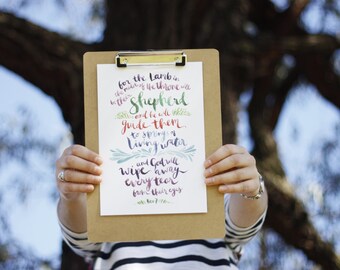 for the Lamb in
the midst of the throne will
be their
Shepherd
and he will
guide them
to springs of
living water
and God will
wipe away
every tear
from their eyes